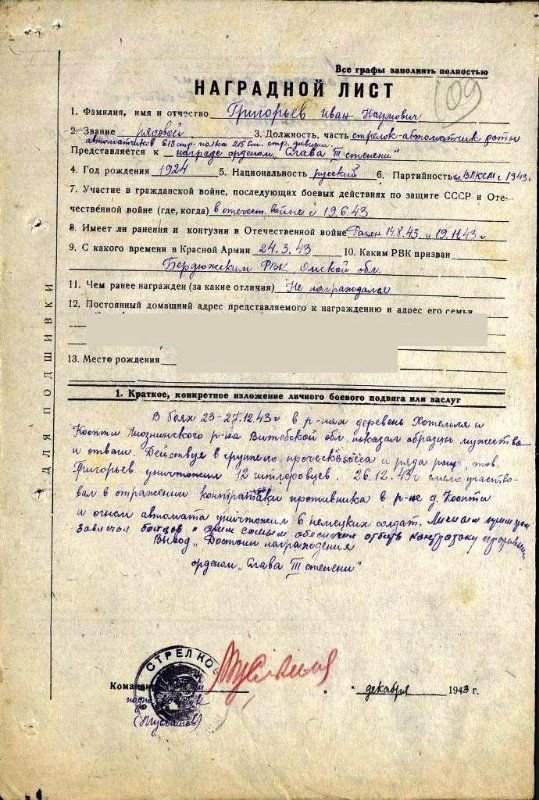 Все графы заполнять полностью
109
НАГРАДНОЙ ЛИСТ
1. Фамилия, имя и отчество Григорьев Иван Наумович
2. Звание рядовой 3. Должность, часть стрелок-автоматчик роты
автоматчиков 618 стр. полка 215 стр. дивизии
Представляется к награде орденом „Слава III степени"
4. Год рождения 1924 5. Национальность русский 6. Партийность ВЛКСМ с 1943 г.
7. Участие в гражданской войне, последующих боевых действиях по защите СССР и Оте-
чественной войне (где, когда) в отечеств. войне с 19.6.43
8. Имеет ли ранения и контузии в Отечественной войне Ранен 14.8.43 и 19.11.43 г.
9. С какого времени в Красной Армии 24.3.43 10. Каким РВК призван
Бердюжским РВК Омской обл.
11. Чем ранее награжден (за какие отличия) Не награждался
12. Постоянный домашний адрес представляемого к награждению и адрес его семьи
13. Место рождения
ДЛЯ ПОДШИВКИ
1. Краткое, конкретное изложение личного боевого подвига или заслуг
В боях 23-27.12.43 г в р-нах деревень Хотемля и
Коопти Лиознинского р-на Витебской обл. показал образцы мужества
и отваги. Действуя в группе и ряда рощ, тов.
Григорьев уничтожил 12 гитлеровцев. 26.12.43 г смело участво-
вал в отражении контратаки противника в р-не д. Коопти
и огнем автомата уничтожил 6 немецких солдат. Личным примером
бойцов и этим самым обеспечил отбить контратаку
Вывод. Достоин награждения
орденом „Слава III степени"
СТРЕЛКО
Коман
декабря 1943 г.